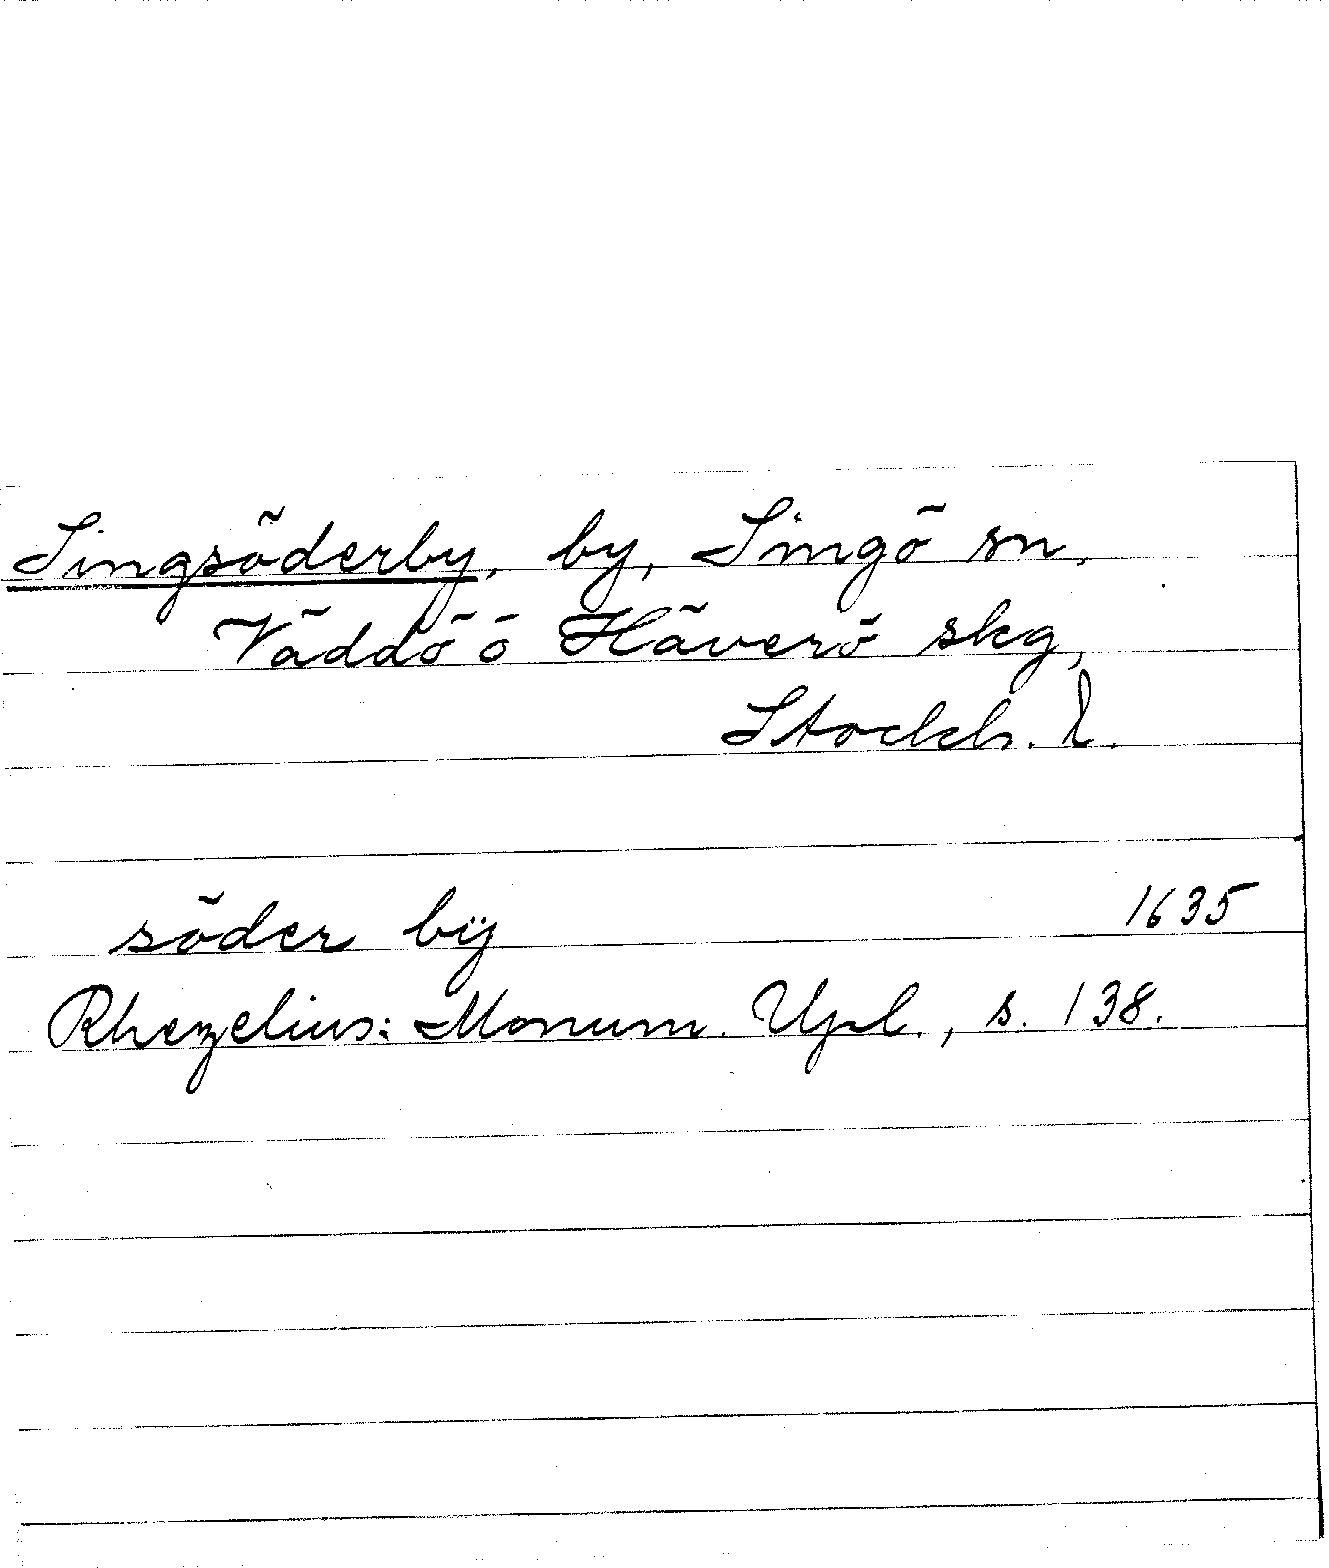 Singsöderby, by, Singö sn,
Väddö ö Häverö skg,
Stockh. l.
söder bÿ 1635
Rhezelius: Monum. Upl., s. 138.